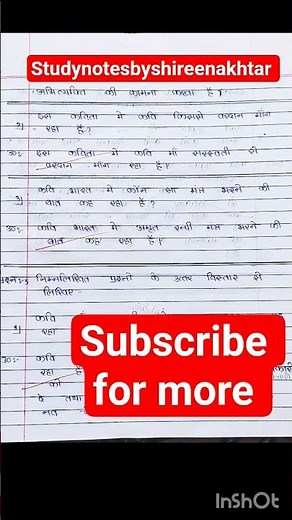 Studynotesbyshireenakhtar
अभिव्यक्ति की कामना करता है।
इस कविता में कवि किससे वरदान माँग
रहा है?
उ०:- इस कविता में कवि माँ सरस्वती से
वरदान माँग रहा है।
कवि भारत में कौन सा मंत्र भरने की
बात कह रहा है?
उ०:- कवि भारत में अमृत रूपी मंत्र भरने की
बात कह रहा है।
निम्नलिखित प्रश्नों के उत्तर विस्तार से
लिखिए-
कवि
रहा
उ०:- कवि
रहा है
को
दे तथा
नव
Subscribe
for more
InShOt